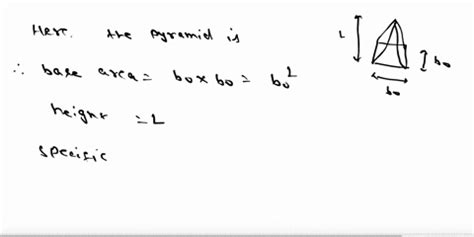 Here. the pyramid is
∴ base area = b₀ × b₀ = b₀²
height = L
specific
L
b₀
b₀